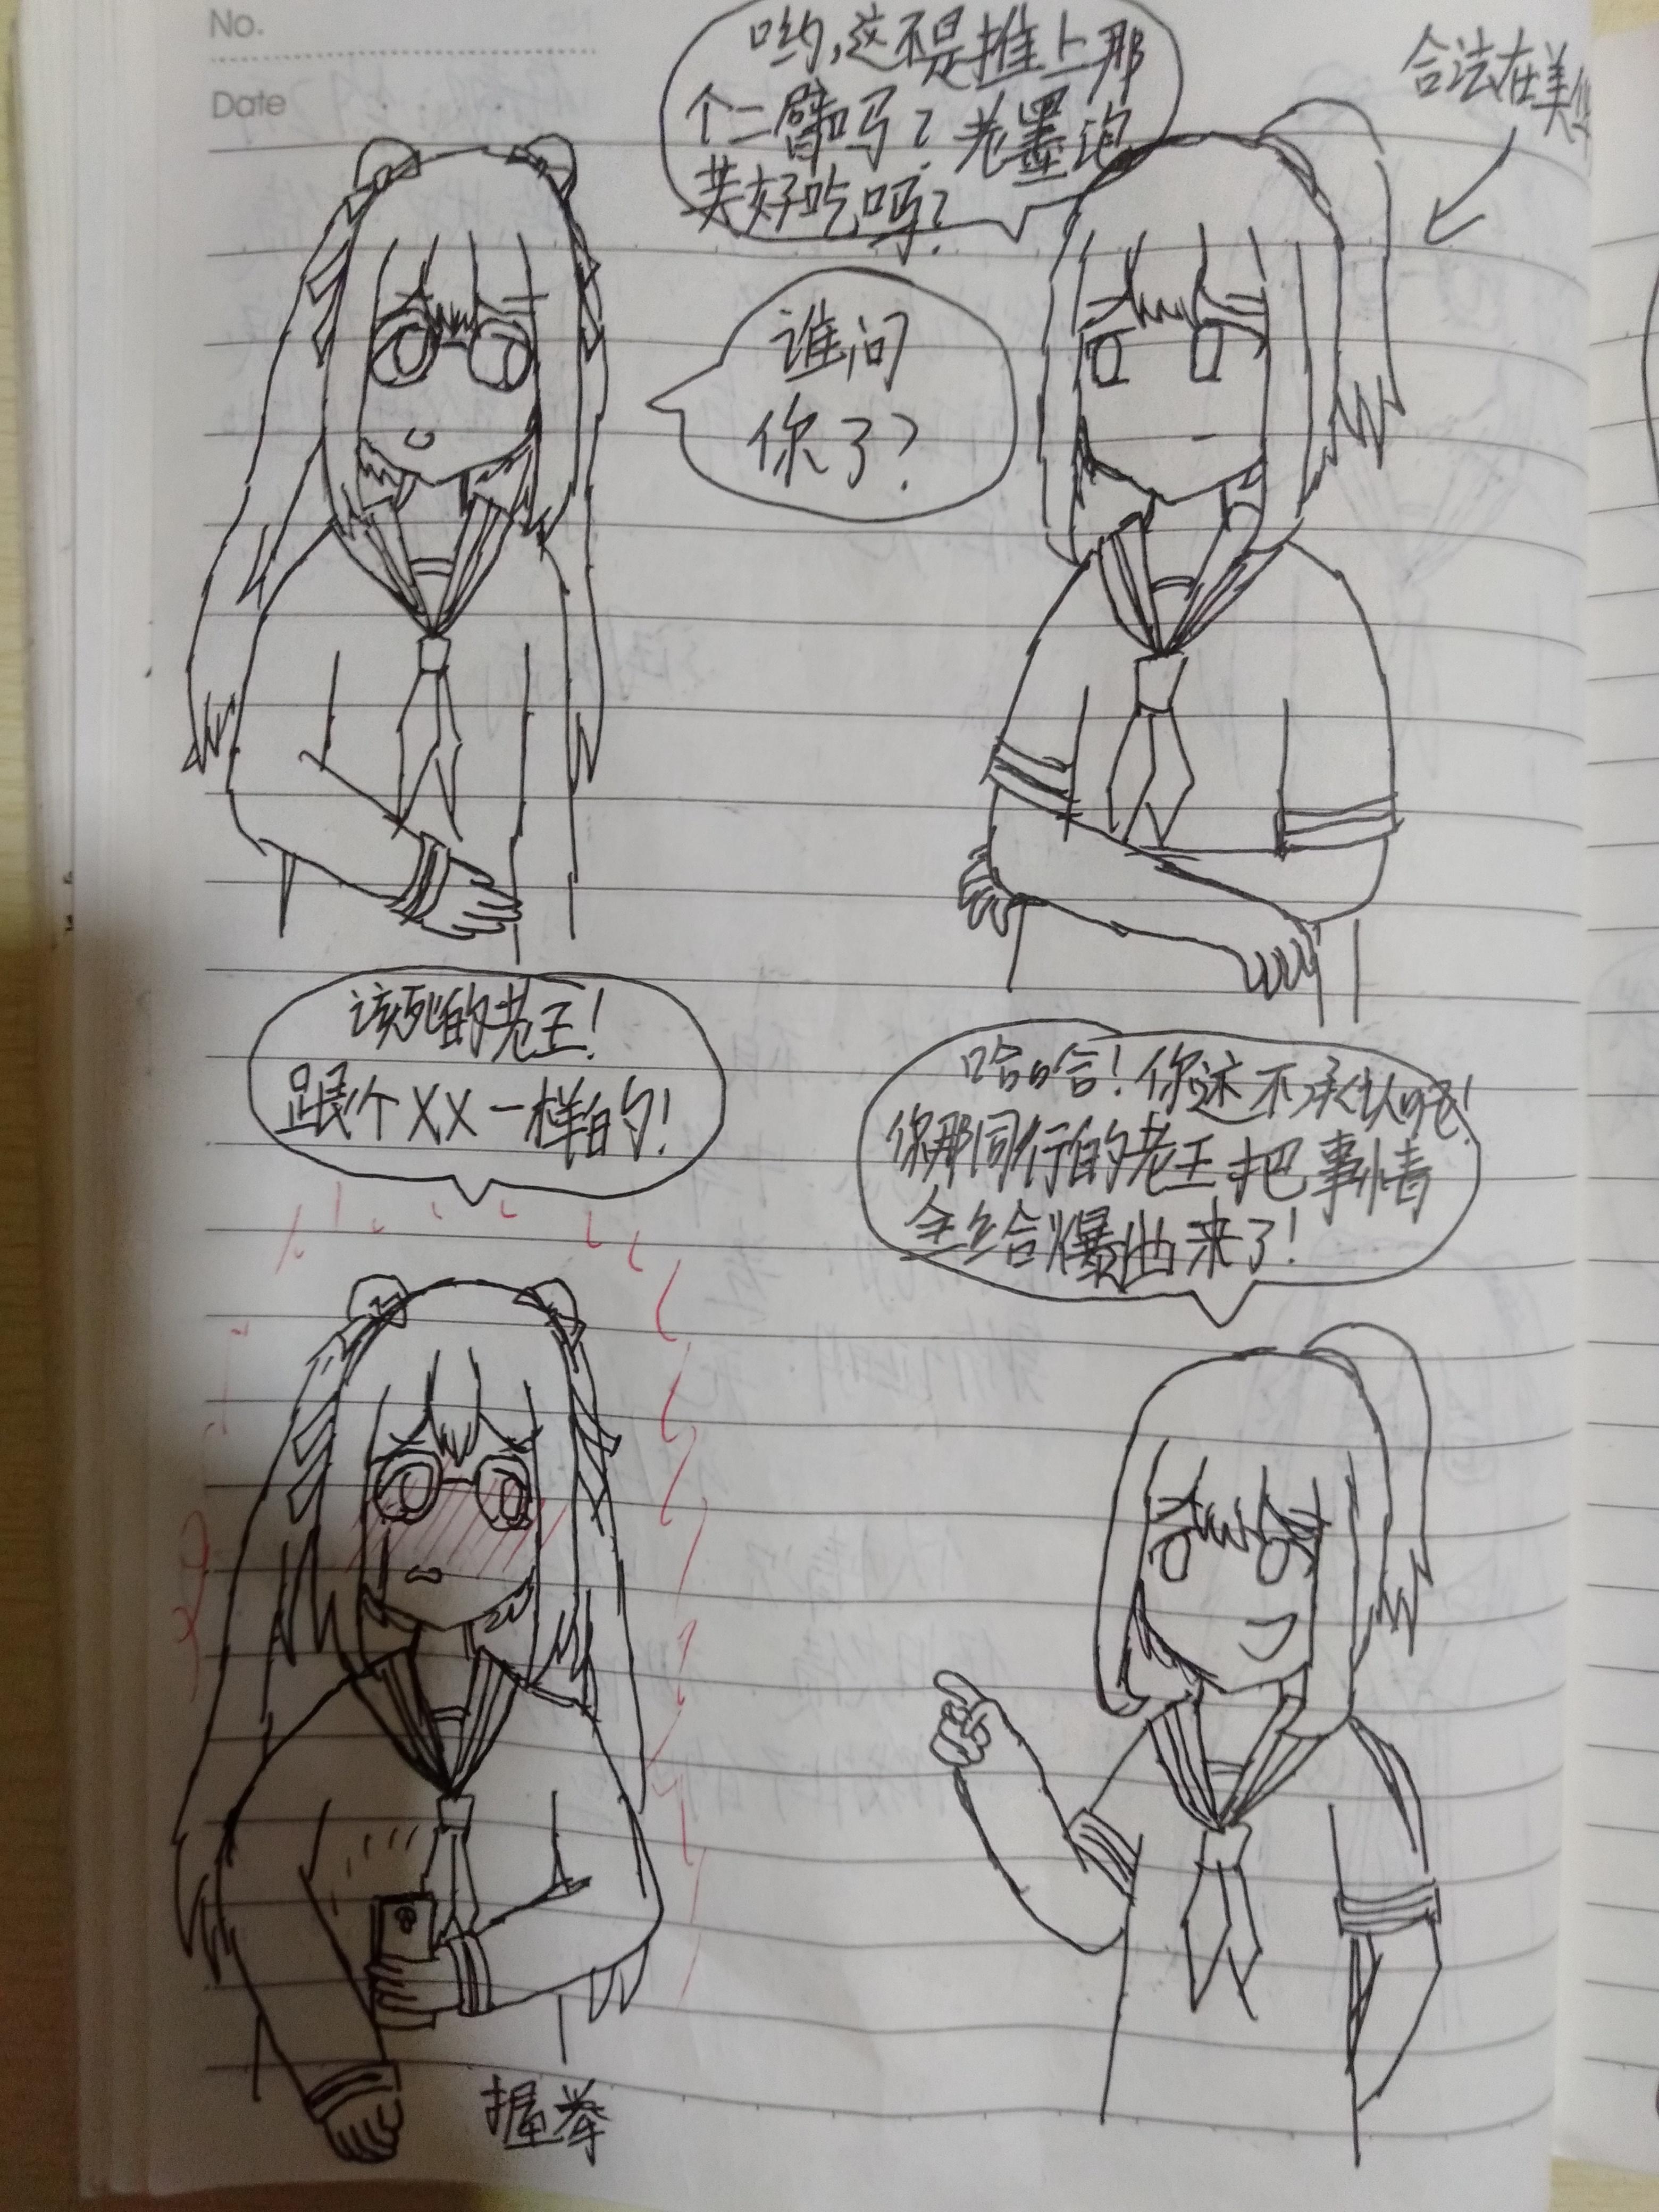 No.
Date
哟,这不是推上那
个二臂吗?老墨泡
芙好吃吗?
合法在美
谁问
你了?
该死的老王!
跟个XX一样的!
哈哈!你还不承认呢!
你那同行的老王把事情
全给爆出来了!
握拳